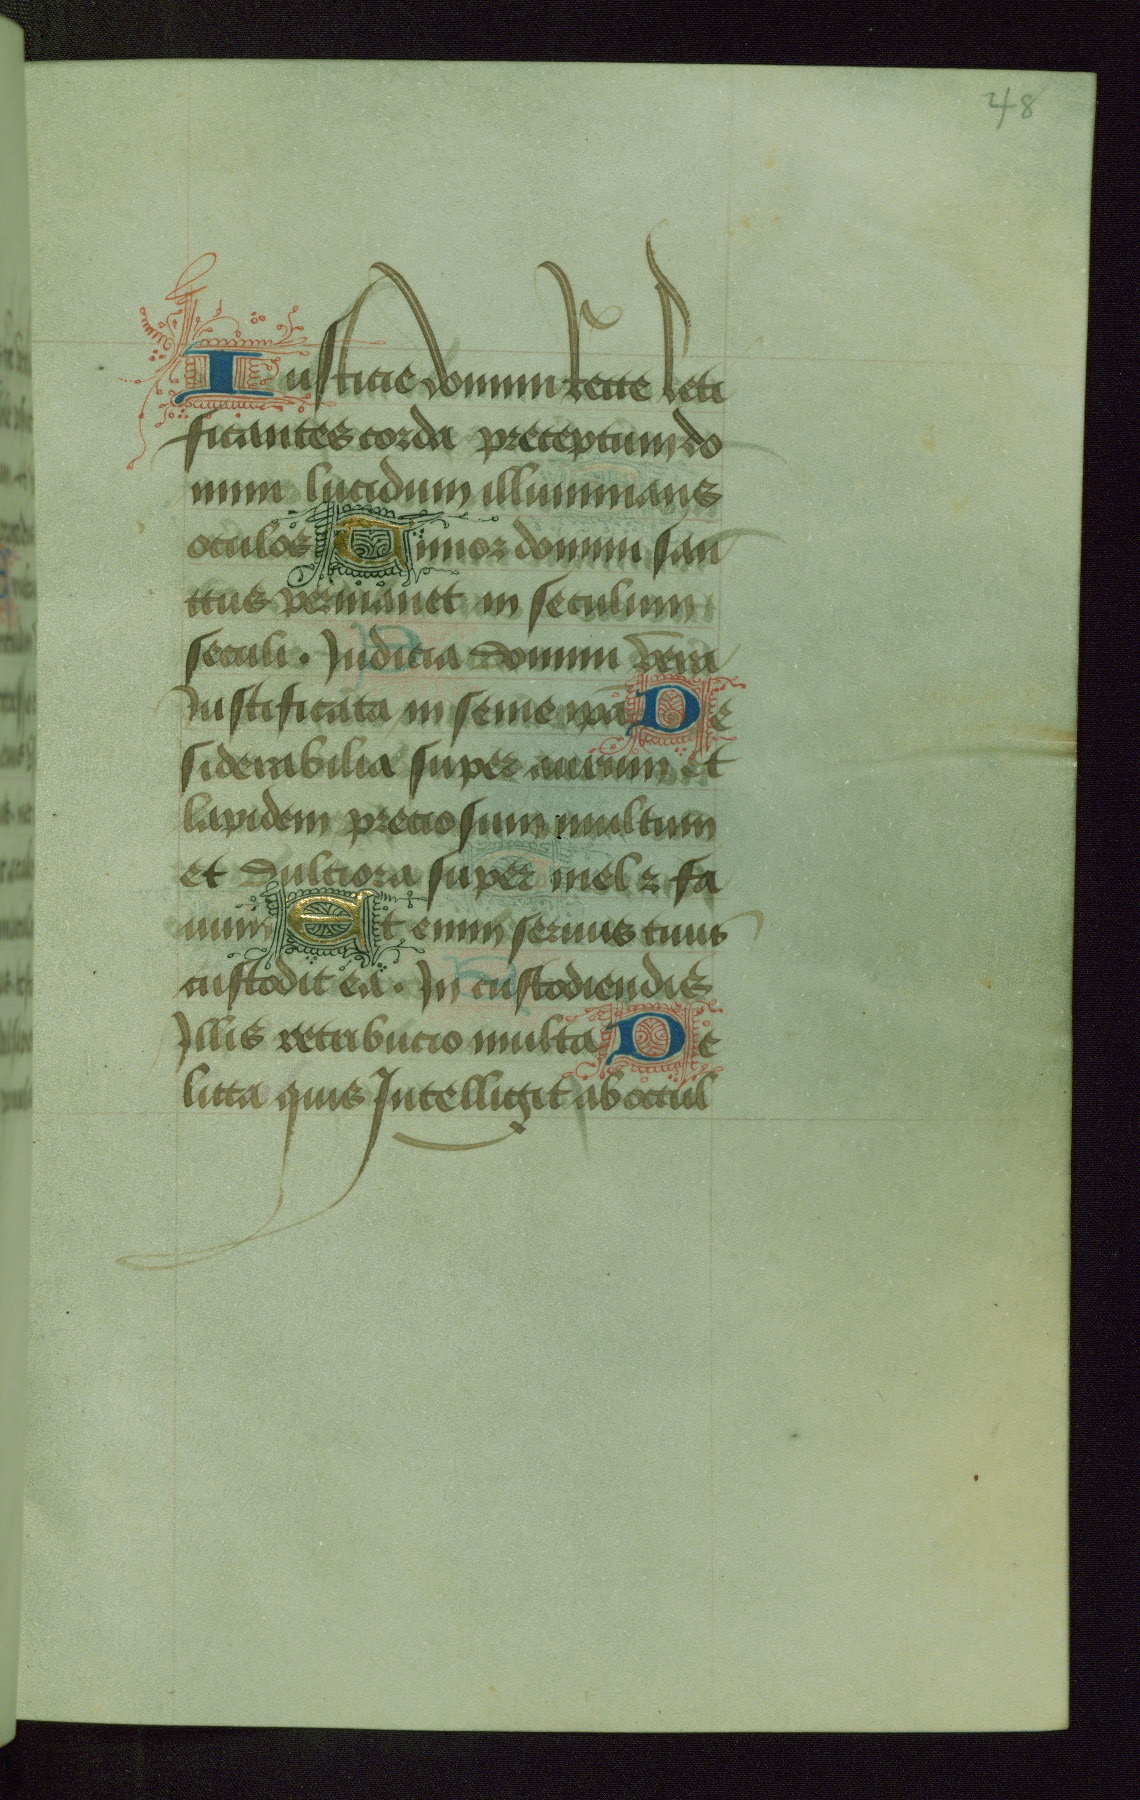 48
Iusticie domini recte leti
ficantes corda preceptum do
mini lucidum illuminans
oculos Timor domini san
ctus permanet in seculum
seculi. Judicia domini vera
Justificata in semeipsa De
siderabilia super aurum et
lapidem preciosum multum
et dulciora super mel ⁊ fa
uum Et enim seruus tuus
custodit ea. In custodiendis
Illis retribucio multa De
licta quis Intelligit ab occul